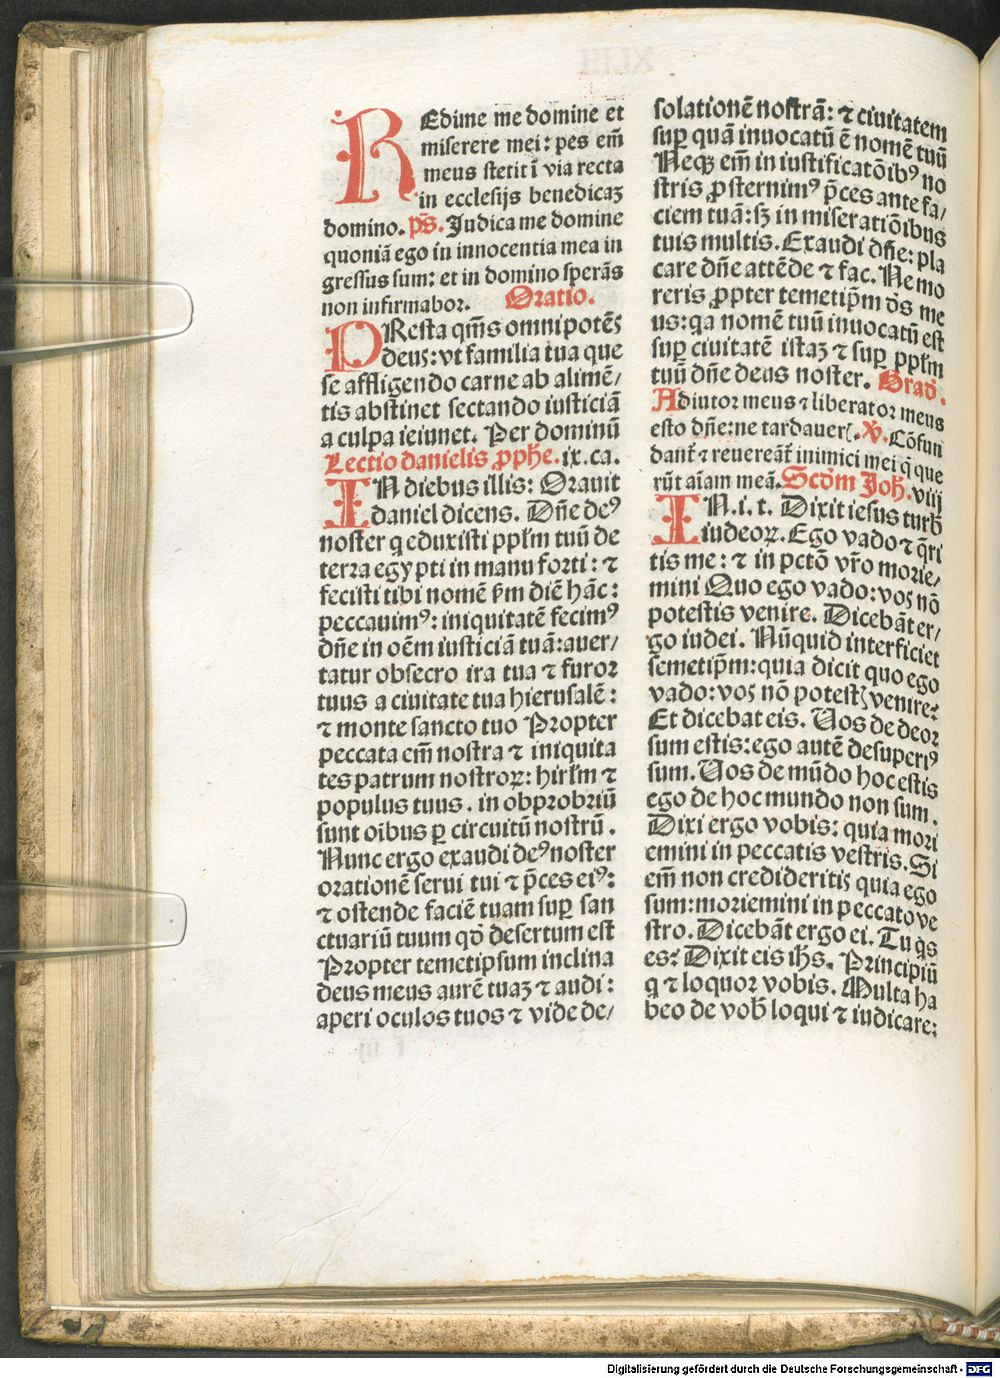 REdime me domine et
miserere mei: pes em̄
meus stetit ī via recta
in ecclesijs benedicaʒ
domino. ps̄. Judica me domine
quoniā ego in innocentia mea in
gressus sum: et in domino sperās
non infirmabor. Oratio.
PResta qm̄s omnipotēs
deus: vt familia tua que
se affligendo carne ab alimē/
tis abstinet sectando iusticiā
a culpa ieiunet. Per dominū
Lectio danielis ꝓphe. ix. ca.
IN diebus illis: Orauit
daniel dicens. Dn̄e deꝰ
noster q eduxisti ppl̄m tuū de
terra egypti in manu forti: ⁊
fecisti tibi nomē ẜm diē hāc:
peccauimꝰ: iniquitatē fecimꝰ
dn̄e in oēm iusticiā tuā: auer/
tatur obsecro ira tua ⁊ furor
tuus a ciuitate tua hierusalē:
⁊ monte sancto tuo Propter
peccata em̄ nostra ⁊ iniquita
tes patrum nostroꝝ: hirl̄m ⁊
populus tuus. in obprobriū
sunt oībus ꝑ circuitū nostrū.
Nunc ergo exaudi deꝰ noster
orationē serui tui ⁊ p̄ces eiꝰ:
⁊ ostende faciē tuam suꝑ san
ctuariū tuum qd̄ desertum est
Propter temetipsum inclina
deus meus aurē tuaʒ ⁊ audi:
aperi oculos tuos ⁊ vide de/
solationē nostrā: ⁊ ciuitatem
suꝑ quā inuocatū ē nomē tuū
Neqʒ em̄ in iustificatōibꝰ no
stris ꝓsternimꝰ p̄ces ante fa/
ciem tuā: sʒ in miseratiōibus
tuis multis. Exaudi dn̄e: pla
care dn̄e attēde ⁊ fac. Ne mo
reris ꝓpter temetip̄m ds̄ me
us: qa nomē tuū inuocatū est
suꝑ ciuitatē istaʒ ⁊ suꝑ ppl̄m
tuū dn̄e deus noster. Grad.
Adiutor meus ⁊ liberator meus
esto dn̄e: ne tardaueris. V. Cōfun
dant̄ ⁊ reuereāt̄ inimici mei q̄ que
rūt aīam meā. Scd̄m Joh̄. viij
IN. i. t. Dixit iesus turb̄
iudeoꝝ. Ego vado ⁊ q̄ri
tis me: ⁊ in pctō vr̄o morie/
mini Quo ego vado: vos nō
potestis venire. Dicebāt er/
go iudei. Nūquid interficiet
semetip̄m: quia dicit quo ego
vado: vos nō potestis venire?
Et dicebat eis. Uos de deor
sum estis: ego autē desuperiꝰ
sum. Uos de mūdo hoc estis
ego de hoc mundo non sum.
Dixi ergo vobis: quia mori
emini in peccatis vestris. Si
em̄ non credideritis quia ego
sum: moriemini in peccato ve
stro. Dicebāt ergo ei. Tu q̄s
es? Dixit eis ih̄s. Principiū
q ⁊ loquor vobis. Multa ha
beo de vob̄ loqui ⁊ iudicare:
Digitalisierung gefördert durch die Deutsche Forschungsgemeinschaft - DFG